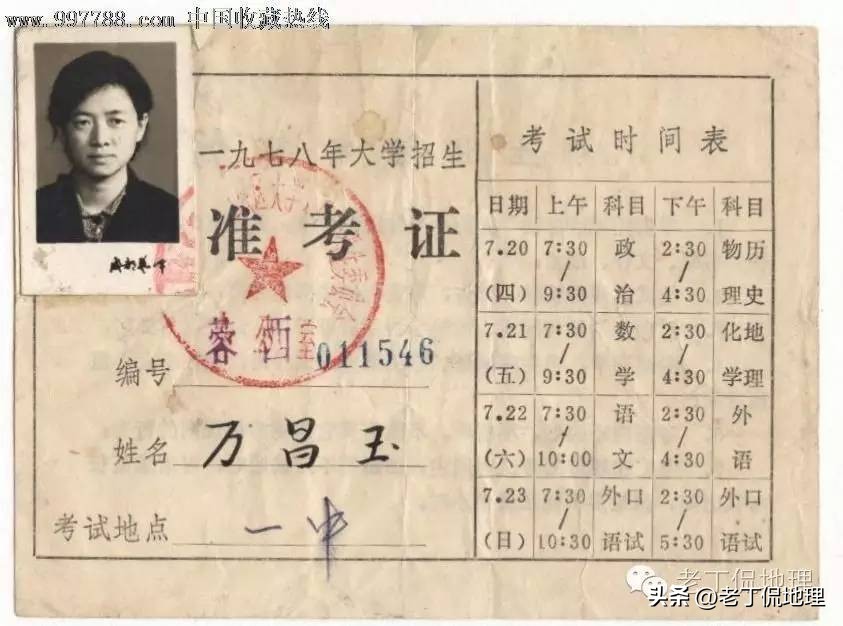 www.997788.com 中国收藏热线
成都艺峰
一九七八年大学招生
准考证
编号 蓉西 011546
姓名 万昌玉
考试地点 一中
考试时间表
日期 上午 科目 下午 科目
7.20 7:30 政 2:30 物历
/ /
(四) 9:30 治 4:30 理史
7.21 7:30 数 2:30 化地
/ /
(五) 9:30 学 4:30 学理
7.22 7:30 语 2:30 外
/ /
(六) 10:00 文 4:30 语
7.23 7:30 外口 2:30 外口
/ /
(日) 10:30 语试 5:30 语试
老丁侃地理
头条 @老丁侃地理